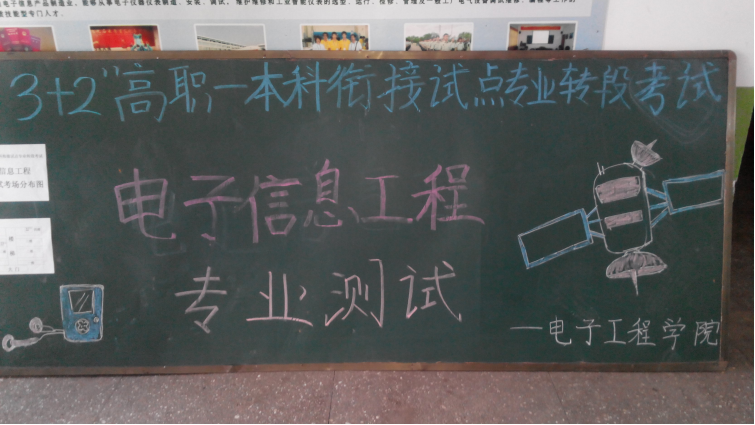 3+2"高职一本科衔接试点专业转段考试
信息工程
式考场分布图
电子信息工程
专业测试
—电子工程学院